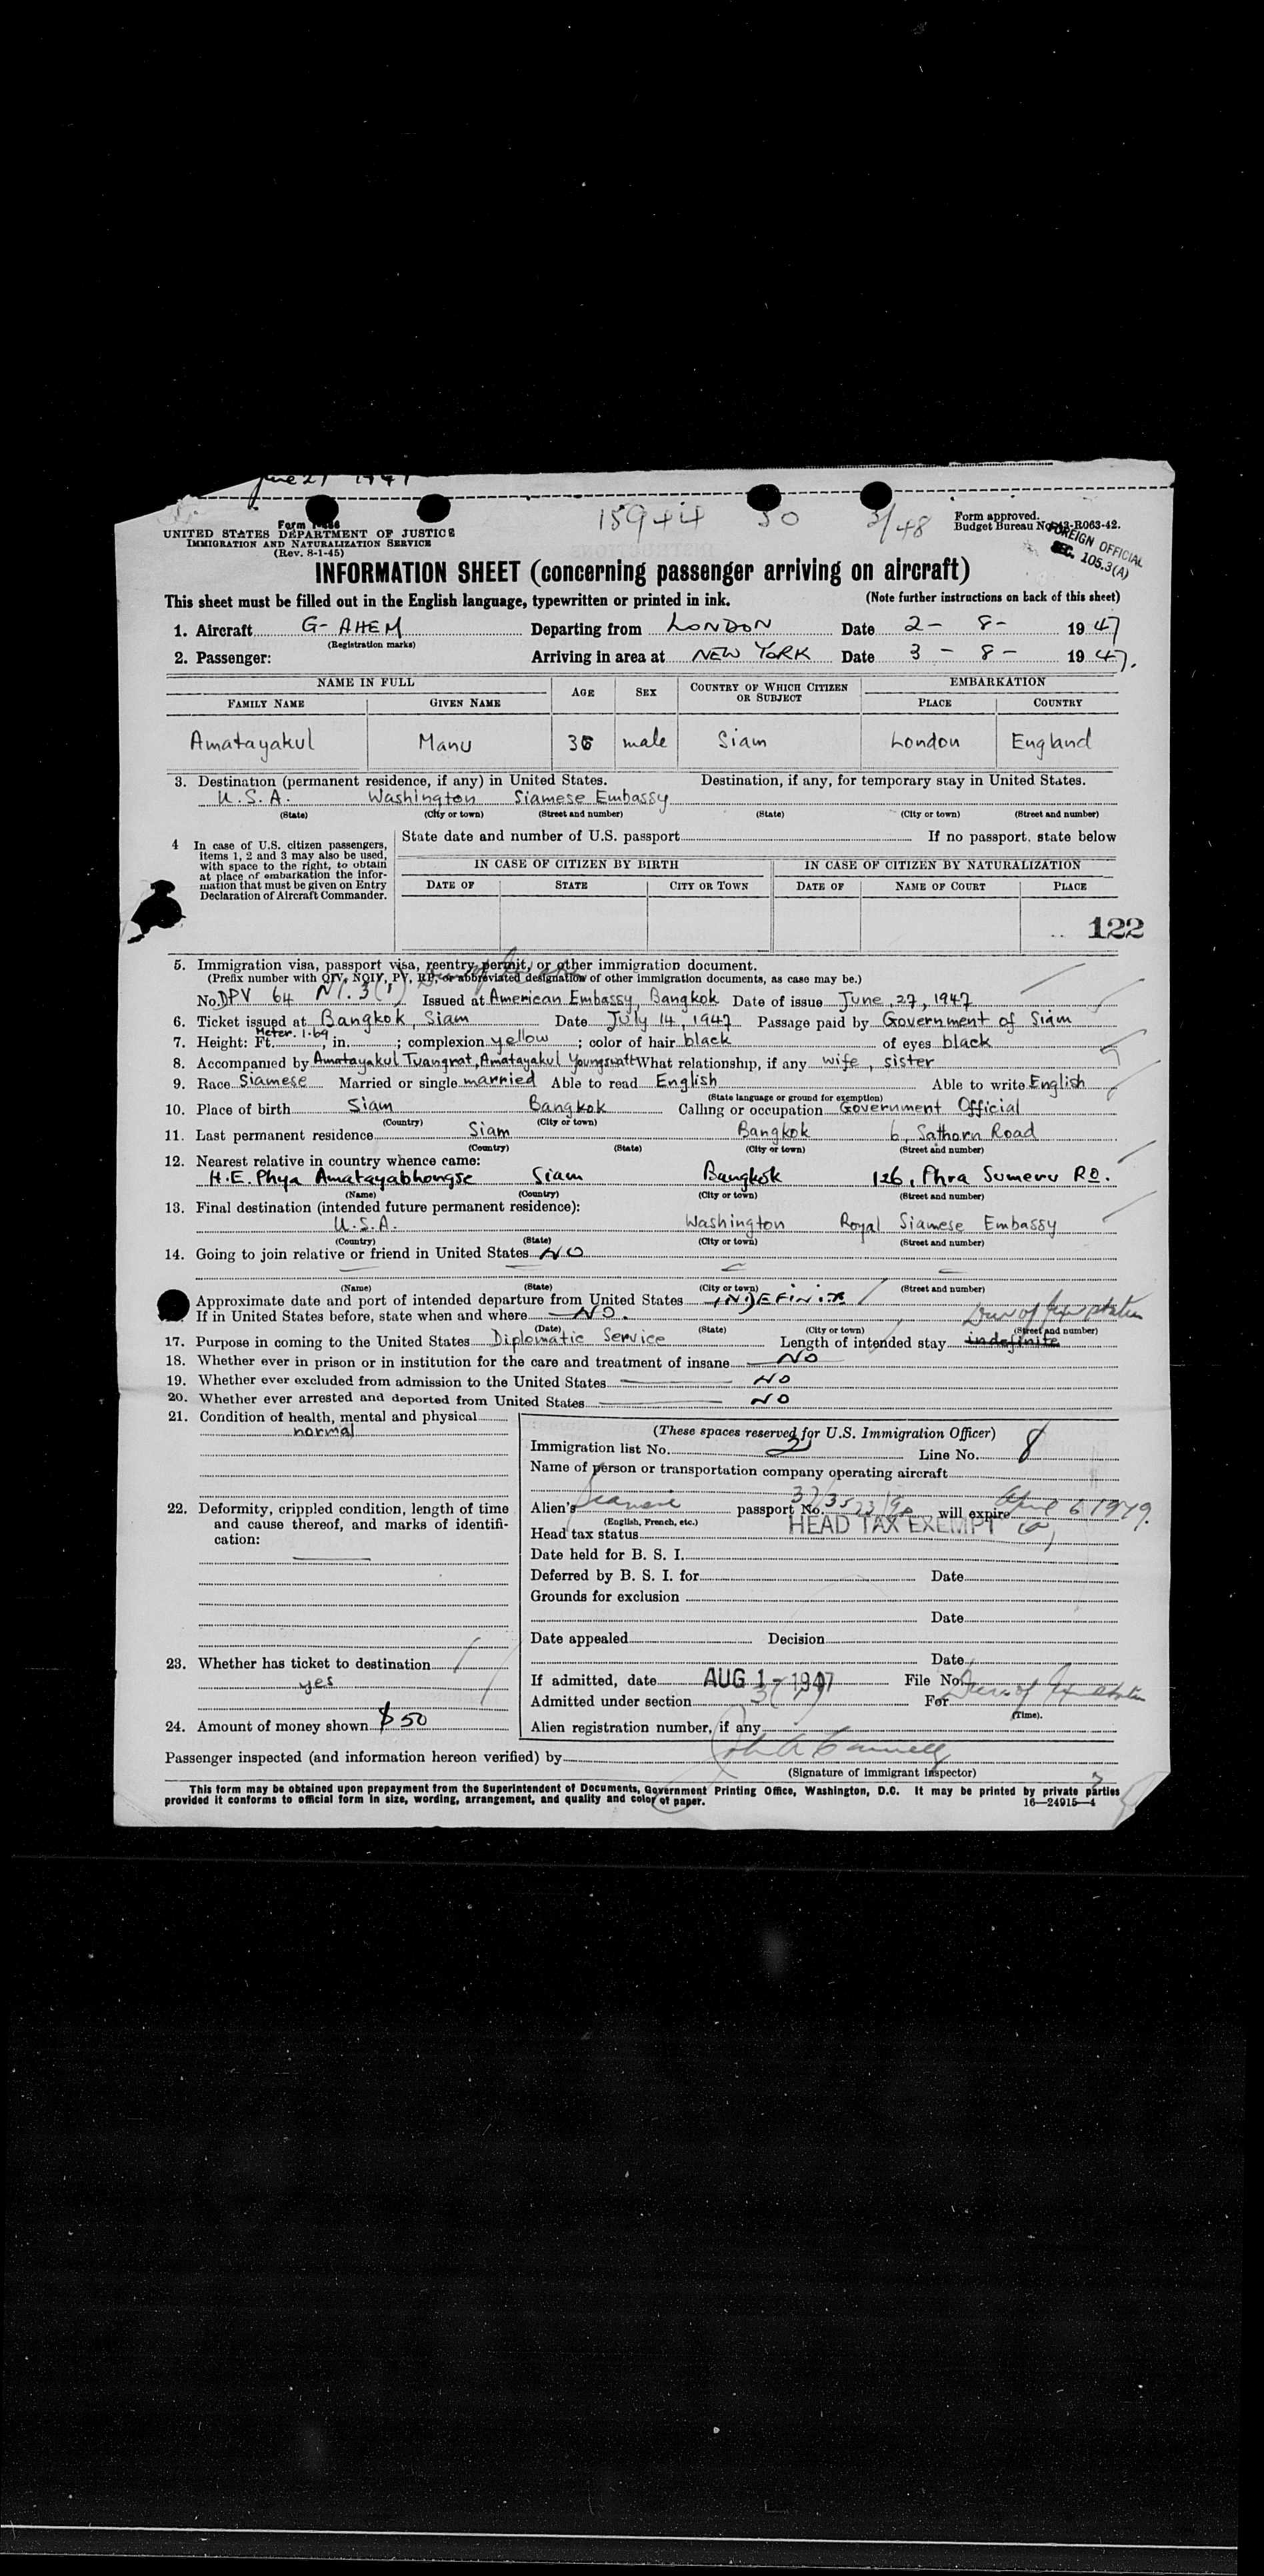 June 27 1947
15944 50 3/48
Form I-466
UNITED STATES DEPARTMENT OF JUSTICE
IMMIGRATION AND NATURALIZATION SERVICE
(Rev. 8-1-45)
Form approved.
Budget Bureau No. 43-R063-42.
FOREIGN OFFICIAL
SEC. 105.3(A)
INFORMATION SHEET (concerning passenger arriving on aircraft)
This sheet must be filled out in the English language, typewritten or printed in ink. (Note further instructions on back of this sheet)
1. Aircraft G-AHEM Departing from LONDON Date 2- 8- 1947
(Registration marks)
2. Passenger: Arriving in area at NEW YORK Date 3 - 8 - 1947.
NAME IN FULL AGE SEX COUNTRY OF WHICH CITIZEN OR SUBJECT EMBARKATION
FAMILY NAME GIVEN NAME PLACE COUNTRY
Amatayakul Manu 36 male Siam London England
3. Destination (permanent residence, if any) in United States. Destination, if any, for temporary stay in United States.
U.S.A. Washington Siamese Embassy
(State) (City or town) (Street and number) (State) (City or town) (Street and number)
4 In case of U.S. citizen passengers, items 1, 2 and 3 may also be used, with space to the right, to obtain at place of embarkation the information that must be given on Entry Declaration of Aircraft Commander.
State date and number of U.S. passport If no passport, state below
IN CASE OF CITIZEN BY BIRTH IN CASE OF CITIZEN BY NATURALIZATION
DATE OF STATE CITY OR TOWN DATE OF NAME OF COURT PLACE
122
5. Immigration visa, passport visa, reentry permit, or other immigration document.
(Prefix number with QIV, NQIV, PV, RP, or abbreviated designation of other immigration documents, as case may be.)
No. DPV 64 N1. 3(1) Issued at American Embassy, Bangkok Date of issue June, 27, 1947
6. Ticket issued at Bangkok, Siam Date July 14, 1947 Passage paid by Government of Siam
7. Height: Ft. Meter. 1.69, in. ; complexion yellow ; color of hair black of eyes black
8. Accompanied by Amatayakul Tuangrat, Amatayakul Youngswatt What relationship, if any wife, sister
9. Race Siamese Married or single married Able to read English Able to write English
(State language or ground for exemption)
10. Place of birth Siam Bangkok Calling or occupation Government Official
(Country) (City or town)
11. Last permanent residence Siam Bangkok 6, Sathorn Road
(Country) (State) (City or town) (Street and number)
12. Nearest relative in country whence came:
H.E. Phya Amatayabhongse Siam Bangkok 126, Phra Sumeru RD.
(Name) (Country) (City or town) (Street and number)
13. Final destination (intended future permanent residence):
U.S.A. Washington Royal Siamese Embassy
(Country) (State) (City or town) (Street and number)
14. Going to join relative or friend in United States NO
(Name) (State) (City or town) (Street and number)
Approximate date and port of intended departure from United States INDEFINITE
If in United States before, state when and where NO.
(Date) (State) (City or town) (Street and number)
17. Purpose in coming to the United States Diplomatic Service Length of intended stay indefinite
18. Whether ever in prison or in institution for the care and treatment of insane NO
19. Whether ever excluded from admission to the United States NO
20. Whether ever arrested and deported from United States NO
21. Condition of health, mental and physical
normal
22. Deformity, crippled condition, length of time and cause thereof, and marks of identification:
23. Whether has ticket to destination
yes
24. Amount of money shown $50
(These spaces reserved for U.S. Immigration Officer)
Immigration list No. 2 Line No. 8
Name of person or transportation company operating aircraft
Alien's Siamese passport No. will expire April 6 1949.
(English, French, etc.)
Head tax status HEAD TAX EXEMPT
Date held for B. S. I.
Deferred by B. S. I. for Date
Grounds for exclusion
Date
Date appealed Decision
Date
If admitted, date AUG 1 - 1947 File No.
Admitted under section 3(1) For
(Time).
Alien registration number, if any
Passenger inspected (and information hereon verified) by
(Signature of immigrant inspector)
This form may be obtained upon prepayment from the Superintendent of Documents, Government Printing Office, Washington, D.C. It may be printed by private parties
provided it conforms to official form in size, wording, arrangement, and quality and color of paper. 16—24915—4